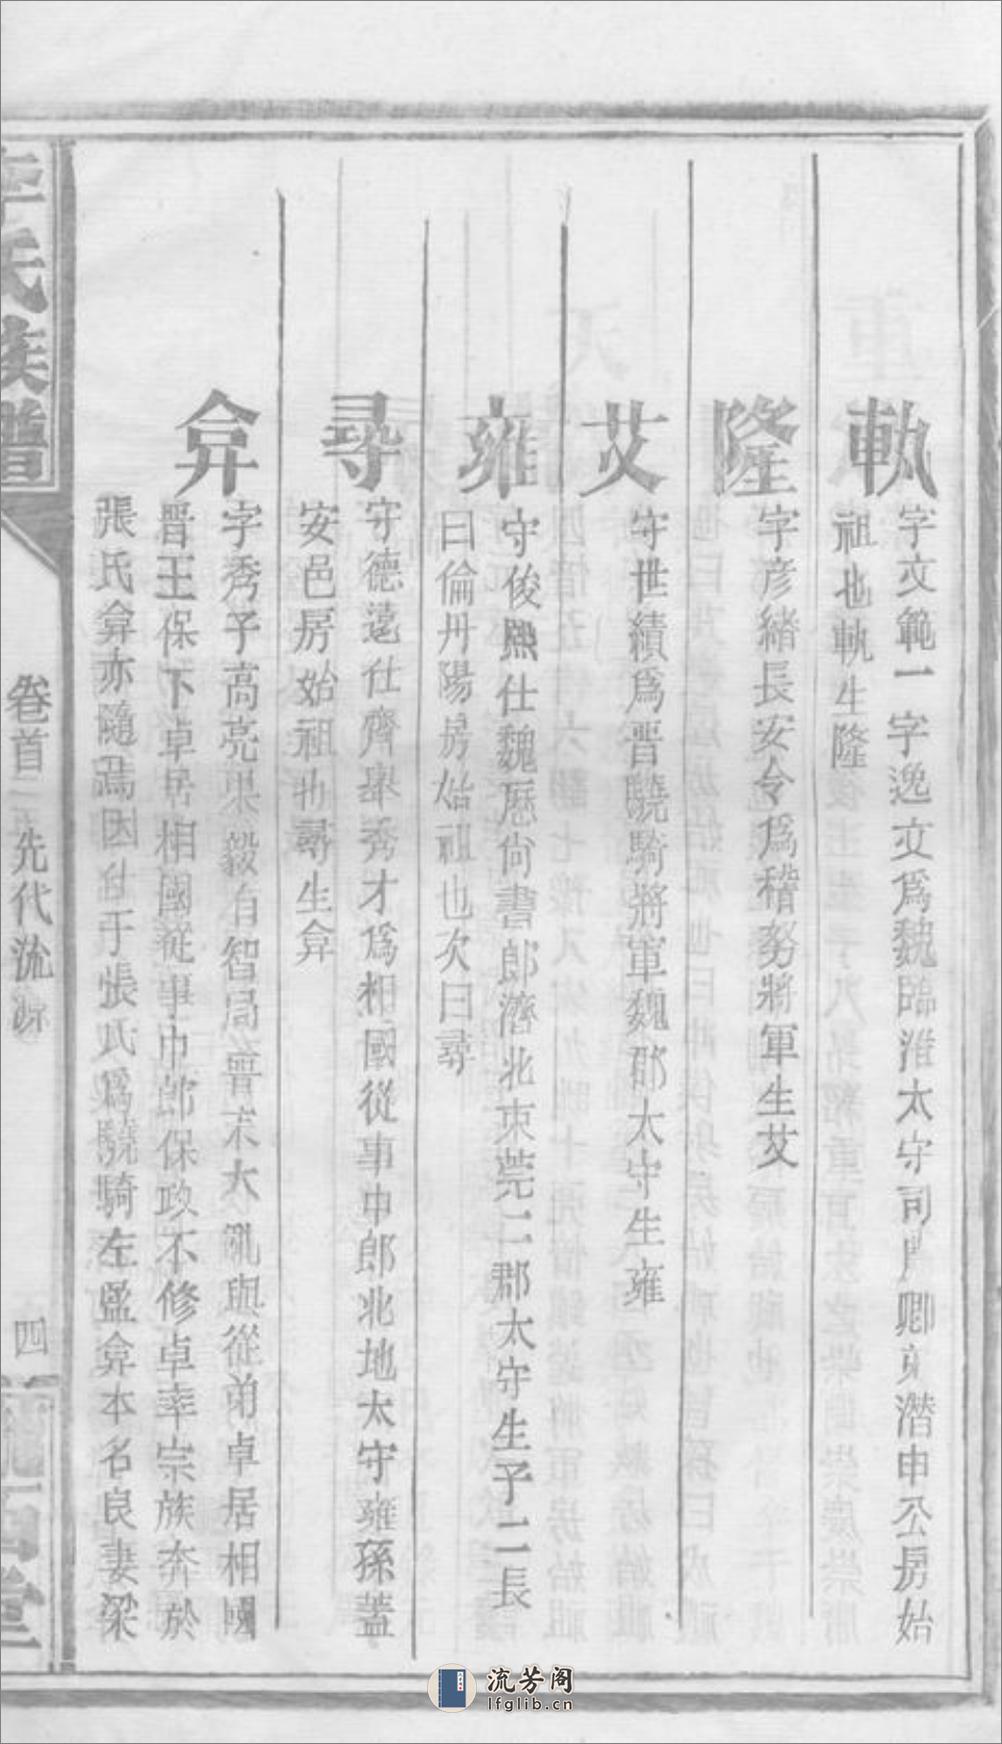 軌
字文範一字逸文爲魏臨淮太守司農卿亦潛申公房始
祖也軌生隆
隆
字彦緒長安令爲積努將軍生艾
艾
字世績爲晋驍騎將軍魏郡太守生雍
雍
字俊熙仕魏歷尙書郎濟北東莞二郡太守生子二長
曰倫丹陽房始祖也次曰尋
尋
字德遠仕齊舉秀才爲相國從事中郎北地太守雍孫蓋
安邑房始祖也尋生弇
弇
字秀子高亮果毅有智局晋末大亂與從弟卓居相國
晋王保下卓居相國從事中郎保政不修卓率宗族奔於
張氏弇亦隨焉因仕于張氏爲驍騎左監弇本名良妻梁
李氏族譜
卷首
先代流源
四
隴西堂
流芳阁
lfglib.cn